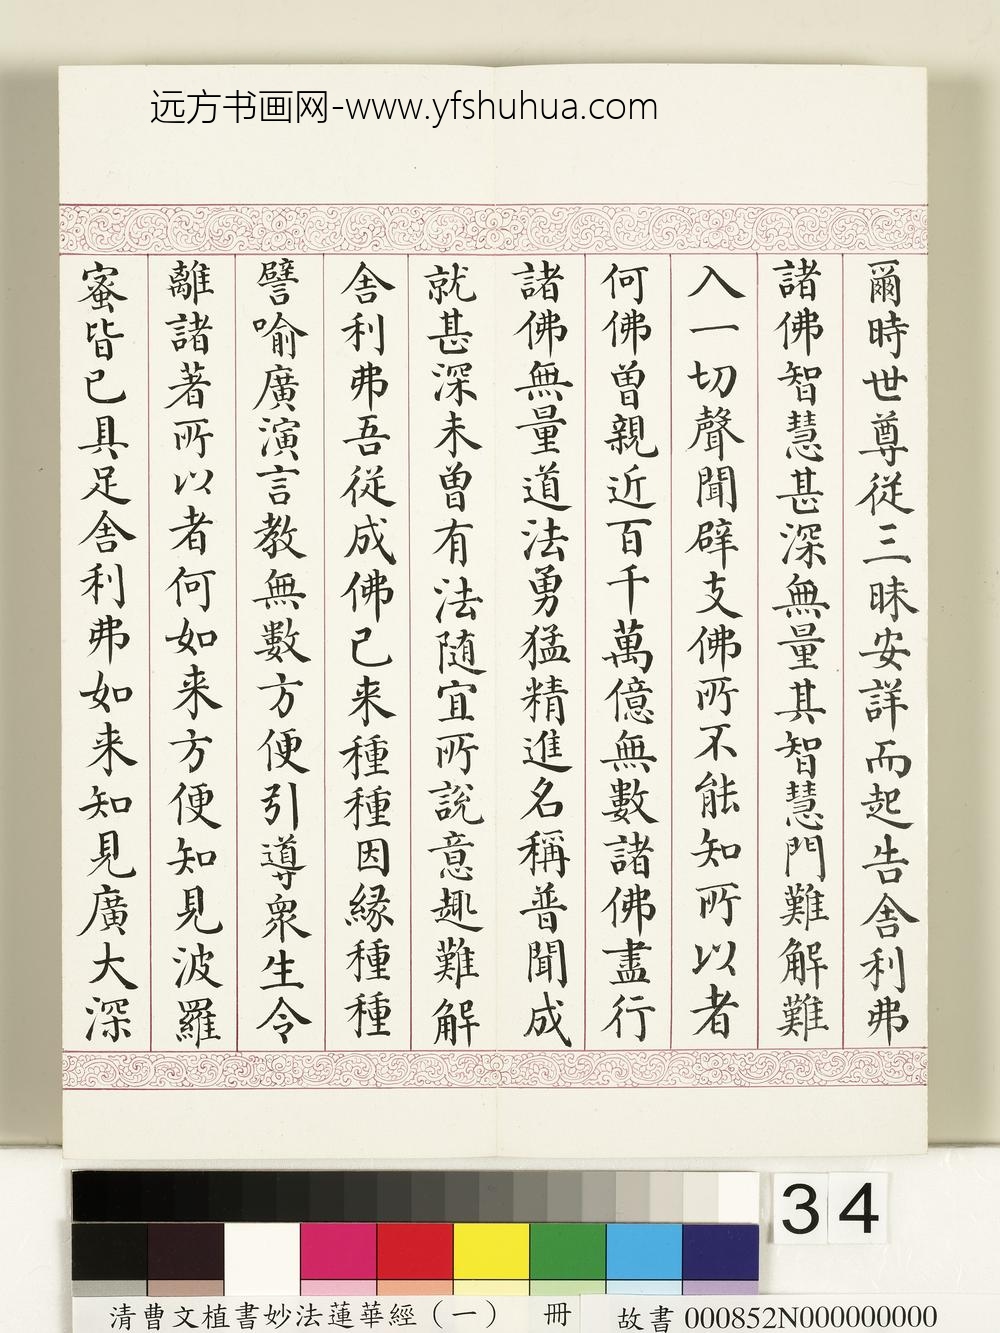 远方书画网-www.yfshuhua.com
爾時世尊從三昧安詳而起告舍利弗
諸佛智慧甚深無量其智慧門難解難
入一切聲聞辟支佛所不能知所以者
何佛曾親近百千萬億無數諸佛盡行
諸佛無量道法勇猛精進名稱普聞成
就甚深未曾有法隨宜所說意趣難解
舍利弗吾從成佛已来種種因緣種種
譬喻廣演言教無數方便引導眾生令
離諸著所以者何如来方便知見波羅
蜜皆已具足舍利弗如来知見廣大深
34
清曹文植書妙法蓮華經（一） 冊 故書 000852N000000000